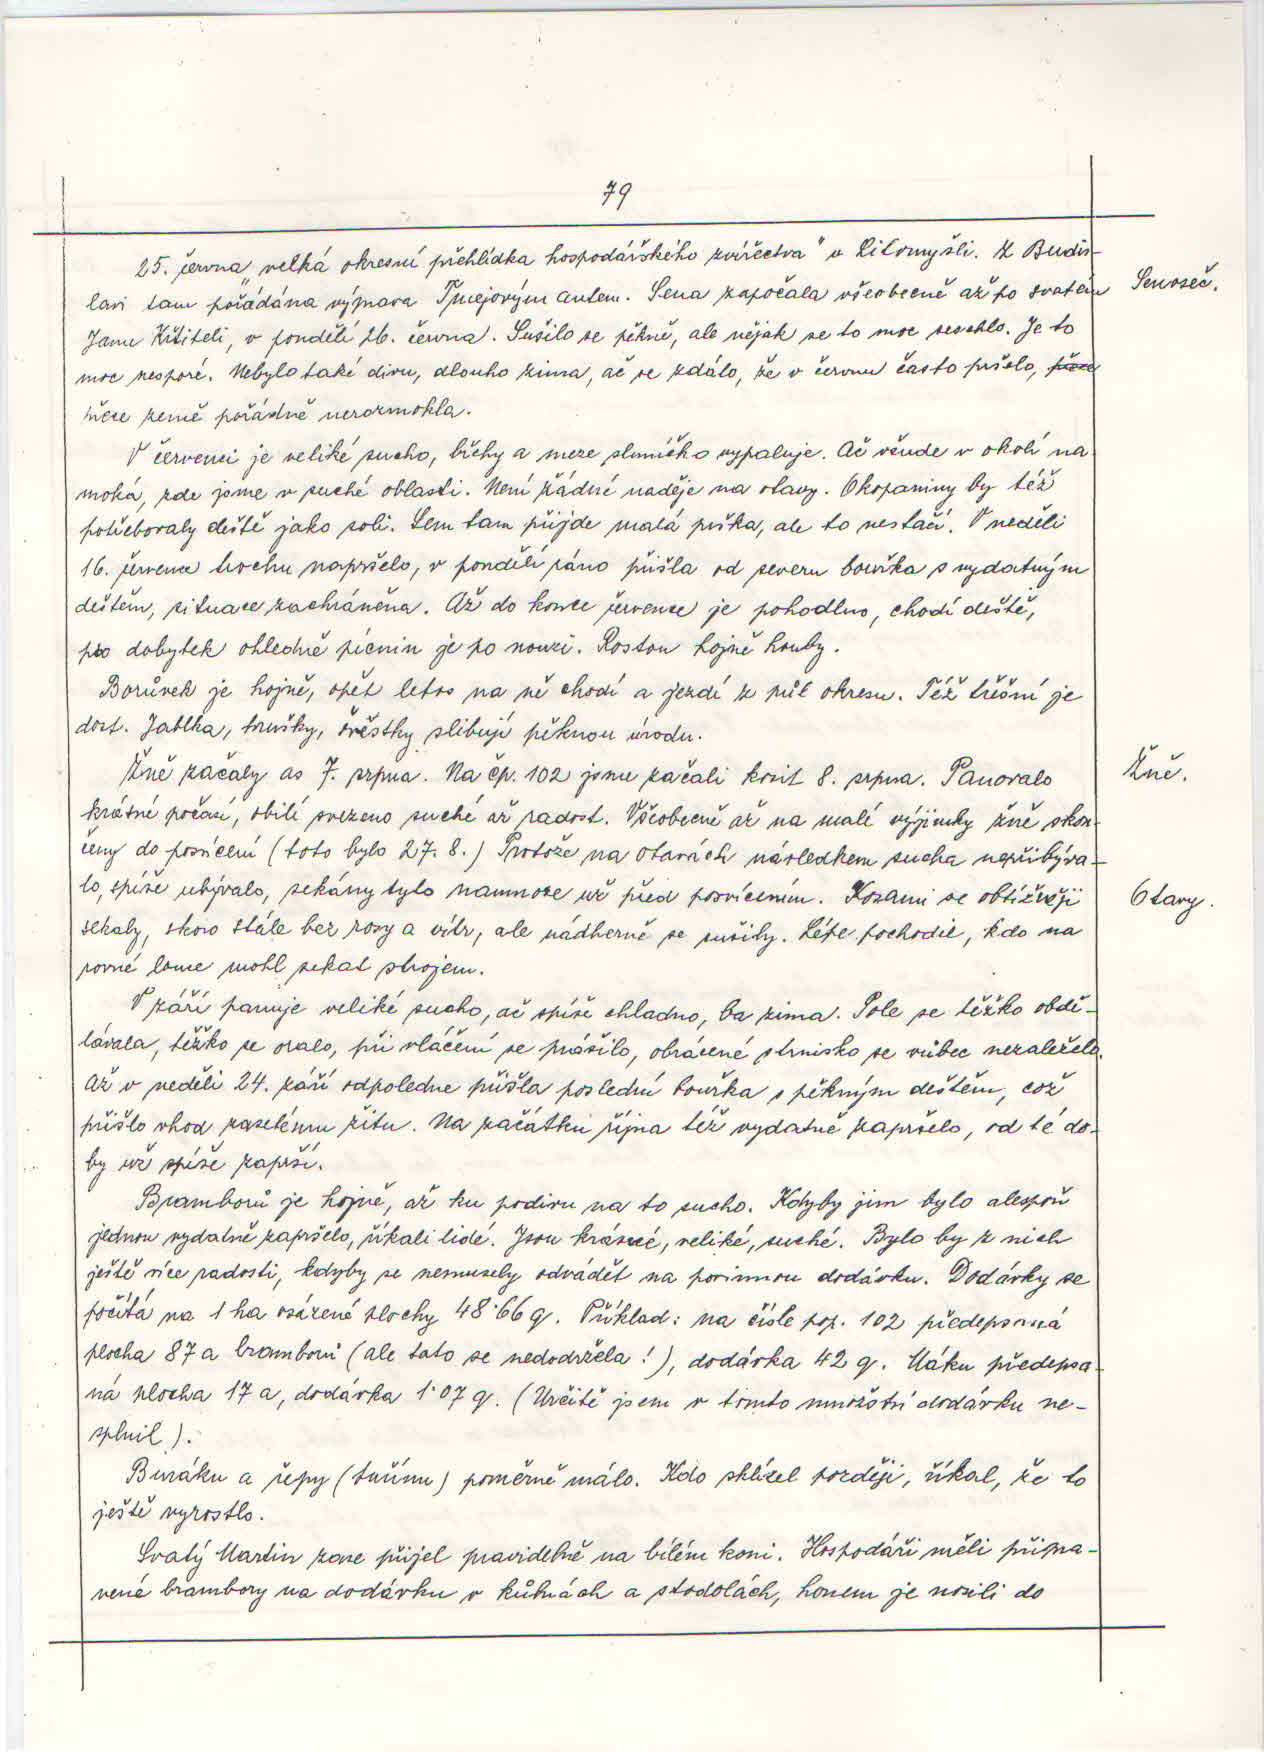 79
25. června „velká okresní přehlídka hospodářského zvířectva" v Litomyšli. Z Budis-
lavi tam pořádána výprava Tmejovým autem. Sena započala všeobecně až po svatém
Senoseč.
Janu Křtiteli, v pondělí 26. června. Sušilo se pěkně, ale nějak se to moc seschlo. Je to
moc nesporé. Nebylo také divu, dlouho zima, ač se zdálo, že v červnu často pršelo,
přece země pořádně nerozmokla.
V červenci je veliké sucho, břehy a meze sluníčko vypaluje. Ač všude v okolí na
moká, zde jsme v suché oblasti. Není žádné naděje na otavy. Okopaniny by též
potřebovaly deště jako soli. Sem tam přijde malá prška, ale to nestačí. V neděli
16. července trochu napršelo, v pondělí ráno přišla od severu bouřka s vydatným
deštěm, situace zachráněna. Až do konce července je pohodlno, chodí deště,
pro dobytek ohledně pícnin je po nouzi. Rostou hojně houby.
Borůvek je hojně, opět letos na ně chodí a jezdí z půl okresu. Též třešní je
dost. Jablka, hrušky, švěstky slibují pěknou úrodu.
Žně začaly as 7. srpna. Na čp. 102 jsme začali kosit 8. srpna. Panovalo
Žně.
krásné počasí, obilí svezeno suché až radost. Všeobecně až na malé výjimky žně skon-
čeny do posvícení (toto bylo 27. 8.) Protože na otavách následkem sucha nepřibýva-
lo, spíše ubývalo, sekány bylo namnoze už před posvícením. Kosami se obtížněji
Otavy.
sekaly, skoro stále bez rosy a vítr, ale nádherně se sušily. Lépe pochodil, kdo na
rovné louce mohl sekat strojem.
V září panuje veliké sucho, ač spíše chladno, ba zima. Pole se těžko obdě-
lávala, těžko se oralo, při vláčení se prášilo, obrácené strnisko se vůbec nezaleželo.
Až v neděli 24. září odpoledne přišla poslední bouřka s pěkným deštěm, což
přišlo vhod zasetému žitu. Na začátku října též vydatně zapršelo, od té do-
by už spíše zaprší.
Bramborů je hojně, až ku podivu na to sucho. Kdyby jim bylo alespoň
jednou vydatně zapršelo, říkali lidé. Jsou krásné, veliké, suché. Bylo by z nich
ještě více radosti, kdyby se nemusely odvádět na povinnou dodávku. Dodávky se
počítá na 1 ha osázené plochy 48·66 q. Příklad: na čísle pop. 102 předepsaná
plocha 87 a bramborů (ale tato se nedodržela!), dodávka 42 q. Máku předepsa-
ná plocha 17 a, dodávka 1·07 q. (Určitě jsem v tomto množství dodávku ne-
splnil).
Buráku a řepy (tuřínu) poměrně málo. Kdo sklízel později, říkal, že to
ještě vyrostlo.
Svatý Martin zase přijel pravidelně na bílém koni. Hospodáři měli připra-
vené brambory na dodávku v kůlnách a stodolách, honem je nosili do